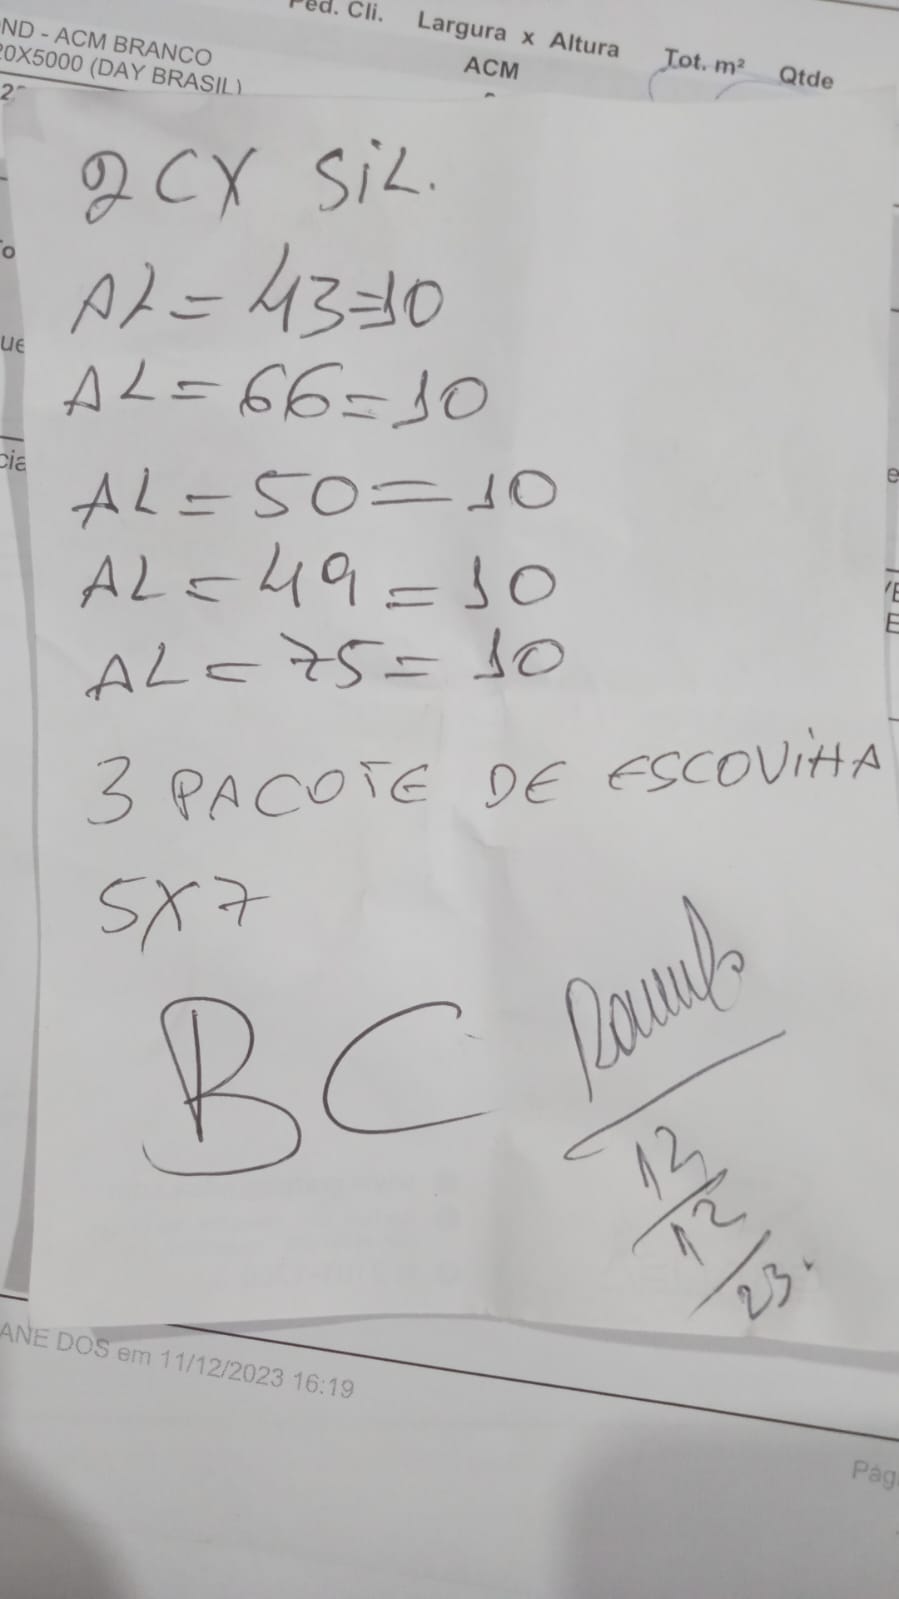 Ped. Cli. Largura x Altura Tot. m² Qtde
ND - ACM BRANCO
20X5000 (DAY BRASIL)
ACM
2 CX SiL.
AL = 43=10
AL = 66=10
AL = 50=10
AL = 49=10
AL = 75=10
3 PACOTE DE ESCOViHA
5X7
BC
12/12/23.
ANE DOS em 11/12/2023 16:19
Pág